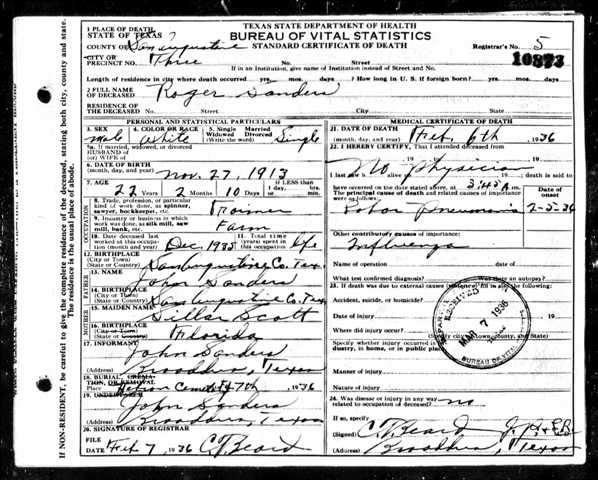 TEXAS STATE DEPARTMENT OF HEALTH
BUREAU OF VITAL STATISTICS
STANDARD CERTIFICATE OF DEATH
1 PLACE OF DEATH
STATE OF TEXAS
COUNTY OF San Augustine
Registrar's No. 5
CITY OR
PRECINCT NO. Three No. Street
10873
If in an Institution, give name of Institution instead of Street and No.
Length of residence in city where death occurred yrs. mos. days? How long in U. S. if foreign born? yrs. mos. days
2 FULL NAME
OF DECEASED Roger Sanders
RESIDENCE OF
THE DECEASED No. Street City State
PERSONAL AND STATISTICAL PARTICULARS
3. SEX
male
4. COLOR OR RACE
White
5. Single Married
Widowed Divorced
(Write the word) Single
5a. If married, widowed, or divorced
HUSBAND OF
(or) WIFE OF
6. DATE OF BIRTH
(month, day, and year) Nov. 27, 1913
7. AGE If LESS than
22 Years 2 Months 10 Days
8. Trade, profession, or particular
kind of work done, as spinner,
sawyer, bookkeeper, etc.
9. Industry or business in which
work was done, as silk mill, saw
mill, bank, etc. Farm
10. Date deceased last worked at
this occupation
(month and year) Dec. 1935
11. Total time
(years) spent in
this occupation life
12. BIRTHPLACE
(City or Town)
(State or Country) San Augustine Co. Tex.
FATHER
13. NAME John Sanders
14. BIRTHPLACE
(City or Town)
(State or Country) San Augustine Co. Tex
MOTHER
15. MAIDEN NAME Scott
16. BIRTHPLACE
(City or Town)
(State or Country) Florida
17. INFORMANT John Sanders
(Address) Broaddus, Texas
18. BURIAL, CREMATION, OR REMOVAL
Place Date Feb 7th 1936
19. UNDERTAKER John Sanders
(Address) Broaddus, Texas
20. SIGNATURE OF REGISTRAR
FILE
DATE Feb 7 1936 C. T. Beard
MEDICAL CERTIFICATE OF DEATH
21. DATE OF DEATH
(month, day, and year) Feb. 6th, 1936
22. I HEREBY CERTIFY, That I attended deceased from
19 to 19
No Physician
I last saw h alive on 19 death is said
to have occurred on the date stated above, at 3:45 A m.
The principal cause of death and related causes of importance
were as follows:
Date of
onset
Lobar Pneumonia 2-3-36
Other contributory causes of importance:
Influenza
Name of operation date of
What test confirmed diagnosis? Was there an autopsy?
23. If death was due to external causes (violence) fill in also the
Accident, suicide, or homicide?
Date of injury 19
Where did injury occur?
(Specify city or town, county, and State)
Specify whether injury occurred in
industry, in home, or in public place
Manner of injury
Nature of injury
RECEIVED
MAR 7 1936
BUREAU OF VITAL
24. Was disease or injury in any way
related to occupation of deceased? no
If so, specify
(Signed) C. T. Beard
(Address) Broaddus, Texas
IF NON-RESIDENT, be careful to give the complete residence of the deceased, stating both city, county and state.
The residence is the usual place of abode.